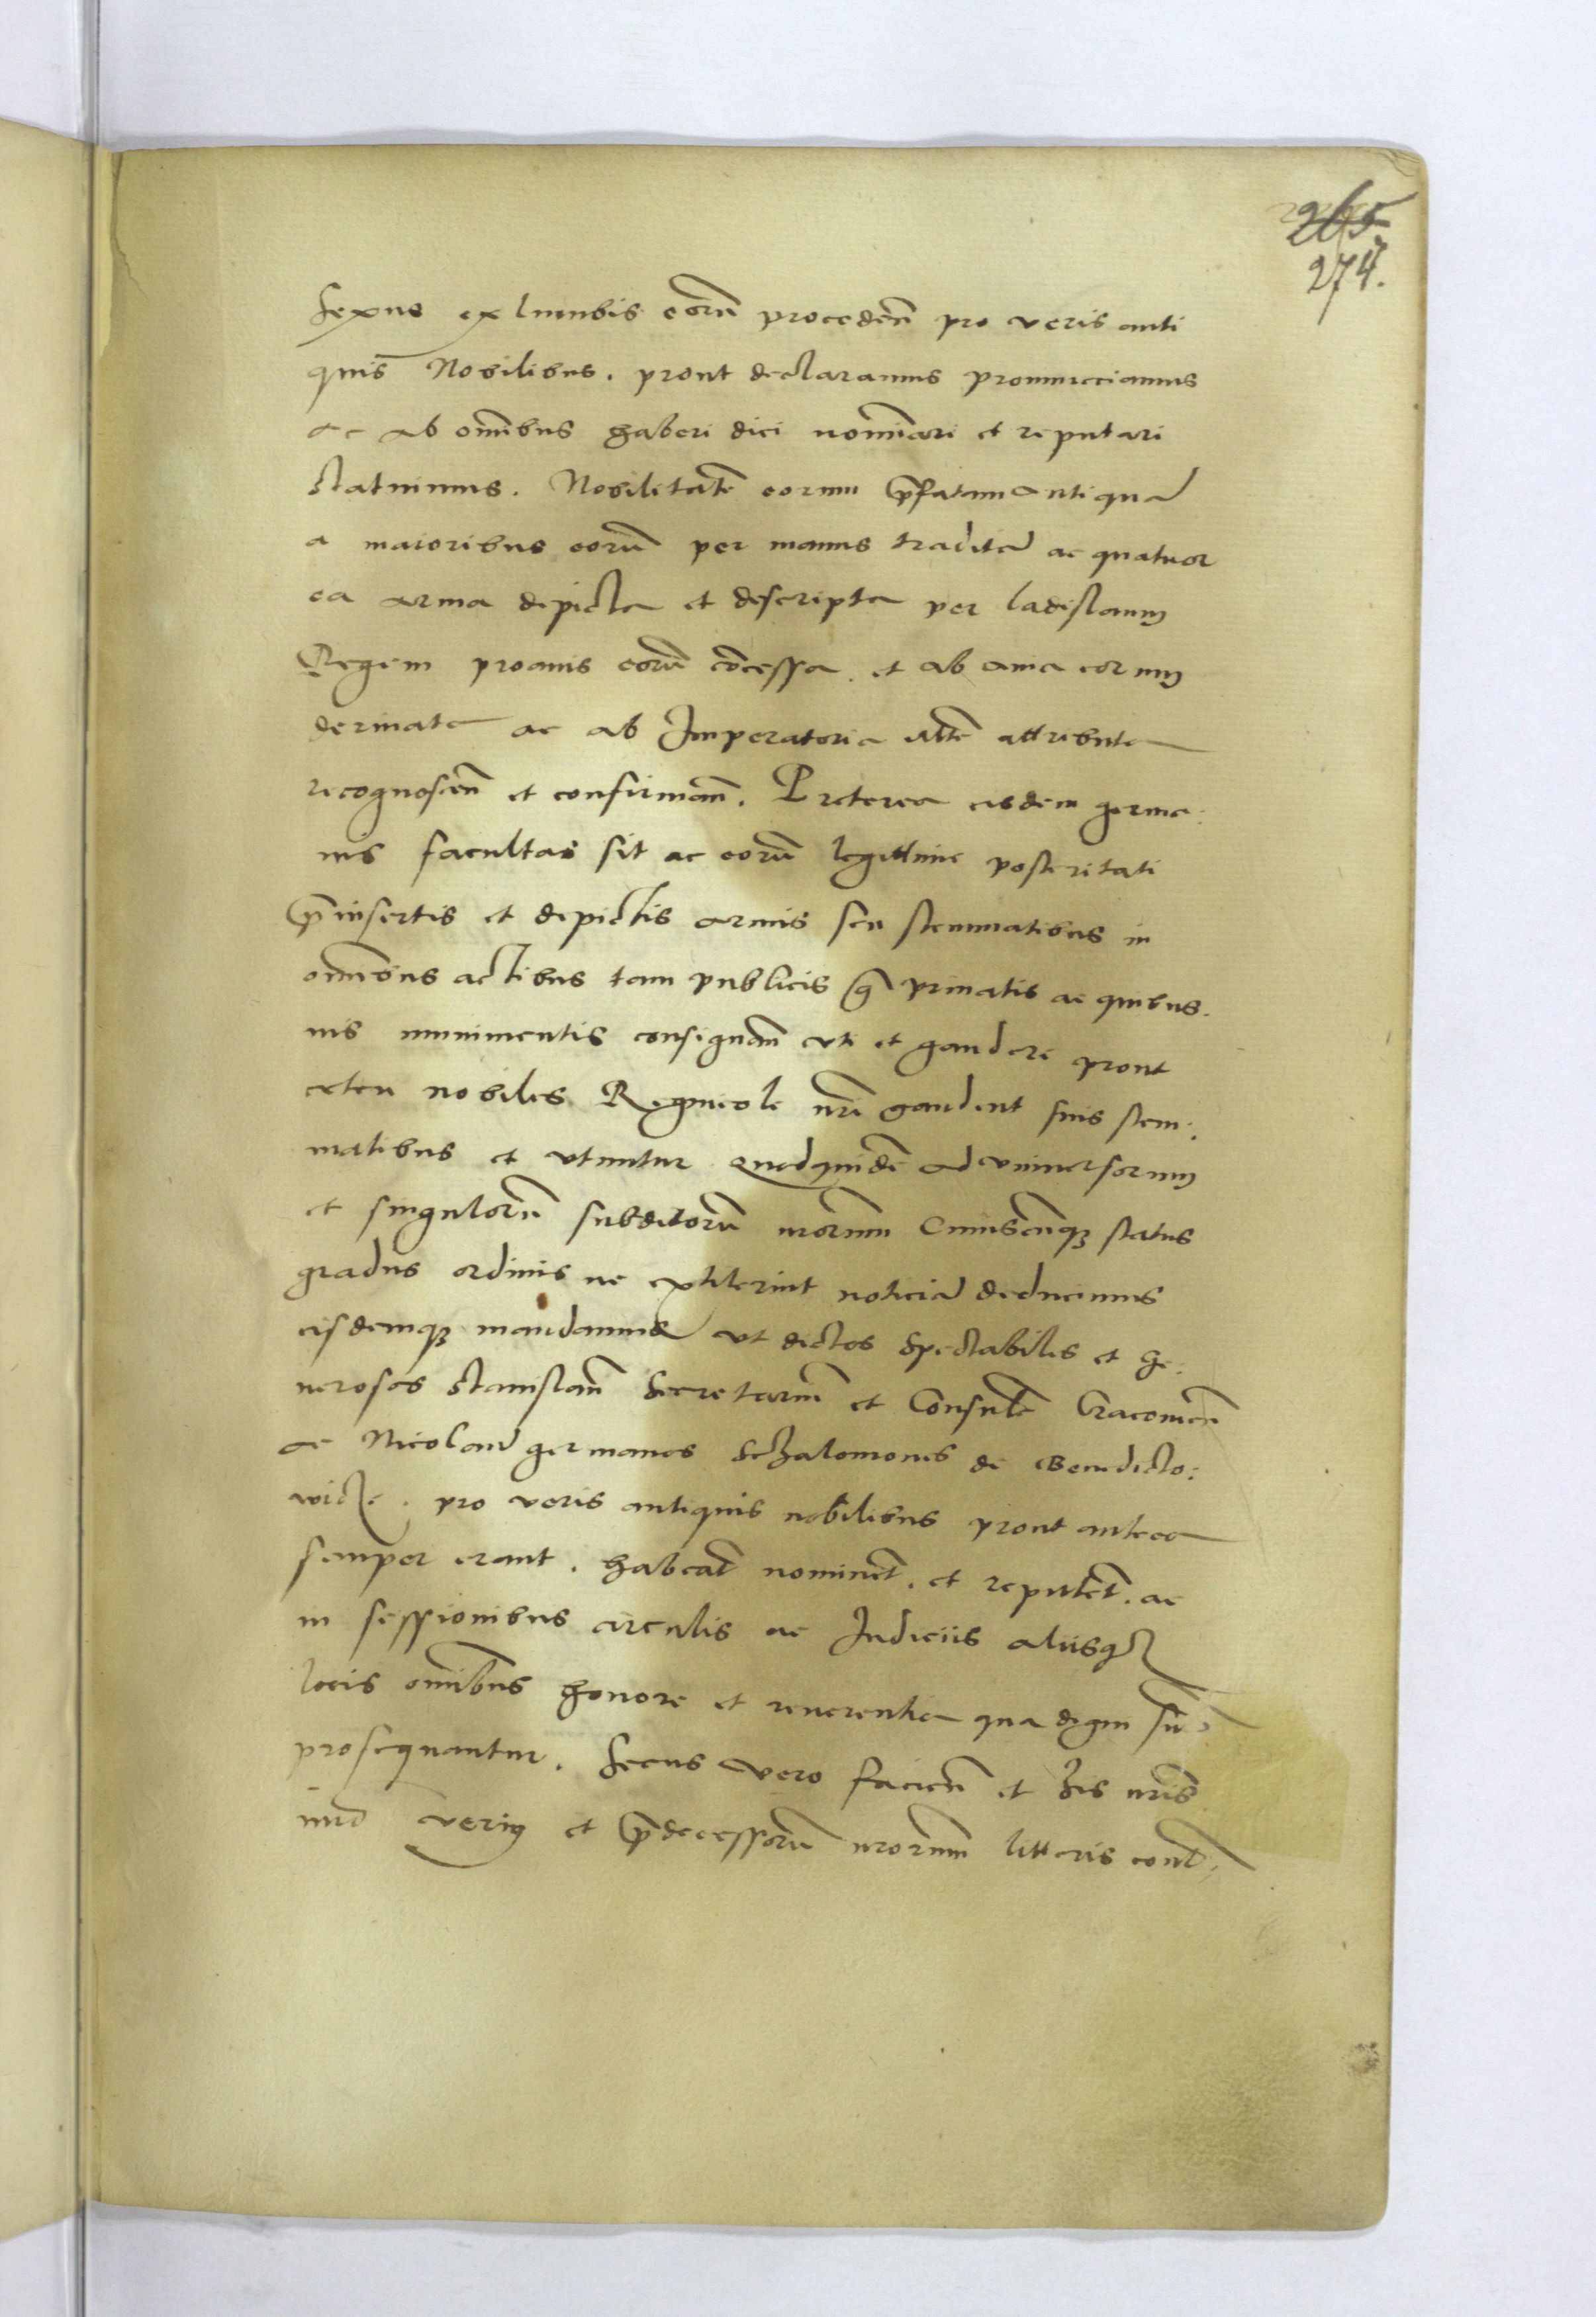 265
274.
sexus ex lumbis eorū procedeñ pro veris anti
quis Nobilibus. prout declaramus pronunciamus
ac ab omībus haberi dici nomīari et reputari
statuimus. Nobilitatē eorum p̄fatam antiquā
a maioribus eorū per manus traditā ac quatuor
ea arma depicta et descripta per ladislaum
Regem proauis eorū cōcessa. et ab auia eorum
deriuata ac ab Imperatoria attributa
recognosceñ et confirmañ. Preterea eisdem germa:
nis facultas sit ac eorū legittime posteritati
p̄insertis et depictis armis seu stemmatibus in
omībus actibus tam publicis q̄ priuatis ac quibus.
uis munimentis consignañ vti et gaudere prout
ceteri nobiles Regnicole nr̄i gaudent suis stem:
matibus et vtuntur quodquidē ad vniuersorum
et singulorū subditorū nrorum Cuiuscūqȝ status
gradus ordinis ue extiterint noticiā deducimus
eisdemqȝ mandamus vt dictos Spectabiles et Ge:
nerosos Stanislaū Secretariū et Consulē Cracouieñ
ac Nicolaū germanos Schalomones de Benedicto:
wicze. pro veris antiquis nobilibus prout antea
semper erant. habeāt nominēt. et reputēt. ac
in sessionibus circulis ac Judiciis aliisqȝ
locis omībus honore et reuerentia qua digni sūt
prosequantur. Secus vero facieñ et his nr̄is
verum et p̄decessorū nrorum litteris cont